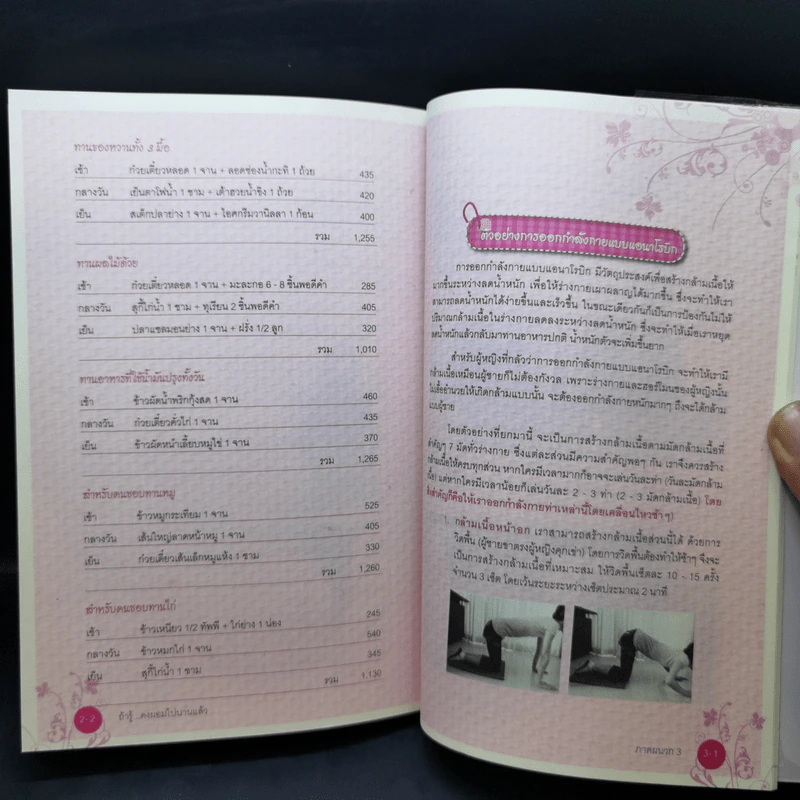 ทานของหวานทั้ง 3 มื้อ
เช้า ก๋วยเตี๋ยวหลอด 1 จาน + ลอดช่องน้ำกะทิ 1 ถ้วย 435
กลางวัน เย็นตาโฟน้ำ 1 ชาม + เต้าฮวยน้ำขิง 1 ถ้วย 420
เย็น สเต็กปลาย่าง 1 จาน + ไอศกรีมวานิลลา 1 ก้อน 400
รวม 1,255
ทานผลไม้ด้วย
เช้า ก๋วยเตี๋ยวหลอด 1 จาน + มะละกอ 6 - 8 ชิ้นพอดีคำ 285
กลางวัน สุกี้ไก่น้ำ 1 ชาม + ทุเรียน 2 ชิ้นพอดีคำ 405
เย็น ปลาแซลมอนย่าง 1 จาน + ฝรั่ง 1/2 ลูก 320
รวม 1,010
ทานอาหารที่ใช้น้ำมันปรุงทั้งวัน
เช้า ข้าวผัดน้ำพริกกุ้งสด 1 จาน 460
กลางวัน ก๋วยเตี๋ยวคั่วไก่ 1 จาน 435
เย็น ข้าวผัดหน้าเลี้ยบหมูไข่ 1 จาน 370
รวม 1,265
สำหรับคนชอบทานหมู
เช้า ข้าวหมูกระเทียม 1 จาน 525
กลางวัน เส้นใหญ่ลาดหน้าหมู 1 จาน 405
เย็น ก๋วยเตี๋ยวเส้นเล็กหมูแห้ง 1 ชาม 330
รวม 1,260
สำหรับคนชอบทานไก่
เช้า ข้าวเหนียว 1/2 ทัพพี + ไก่ย่าง 1 น่อง 245
กลางวัน ข้าวหมกไก่ 1 จาน 540
เย็น สุกี้ไก่น้ำ 1 ชาม 345
รวม 1,130
2-2 ถ้ารู้...คงผอมไปนานแล้ว
ตัวอย่างการออกกำลังกายแบบแอนาโรบิก
การออกกำลังกายแบบแอนาโรบิก มีวัตถุประสงค์เพื่อสร้างกล้ามเนื้อให้
มากขึ้นระหว่างลดน้ำหนัก เพื่อให้ร่างกายเผาผลาญได้มากขึ้น ซึ่งจะทำให้เรา
สามารถลดน้ำหนักได้ง่ายขึ้นและเร็วขึ้น ในขณะเดียวกันก็เป็นการป้องกันไม่ให้
ปริมาณกล้ามเนื้อในร่างกายลดลงระหว่างลดน้ำหนัก ซึ่งจะทำให้เมื่อเราหยุด
ลดน้ำหนักแล้วกลับมาทานอาหารปกติ น้ำหนักตัวจะเพิ่มขึ้นยาก
สำหรับผู้หญิงที่กลัวว่าการออกกำลังกายแบบแอนาโรบิก จะทำให้เรามี
กล้ามเนื้อเหมือนผู้ชายก็ไม่ต้องกังวล เพราะร่างกายและฮอร์โมนของผู้หญิงนั้น
ไม่เอื้ออำนวยให้เกิดกล้ามแบบนั้น จะต้องออกกำลังกายหนักมากๆ ถึงจะได้กล้าม
แบบผู้ชาย
โดยตัวอย่างที่ยกมานี้ จะเป็นการสร้างกล้ามเนื้อตามมัดกล้ามเนื้อที่
สำคัญๆ 7 มัดทั่วร่างกาย ซึ่งแต่ละส่วนมีความสำคัญพอๆ กัน เราจึงควรสร้าง
กล้ามเนื้อให้ครบทุกส่วน หากใครมีเวลามากก็อาจจะเล่นวันละท่า (วันละมัดกล้าม
เนื้อ) แต่หากใครมีเวลาน้อยก็เล่นวันละ 2 - 3 ท่า (2 - 3 มัดกล้ามเนื้อ) โดย
สิ่งสำคัญก็คือให้เราออกกำลังกายท่าเหล่านี้โดยเคลื่อนไหวช้าๆ)
1. กล้ามเนื้อหน้าอก เราสามารถสร้างกล้ามเนื้อส่วนนี้ได้ ด้วยการ
วิดพื้น (ผู้ชายขาตรงผู้หญิงคุกเข่า) โดยการวิดพื้นต้องทำให้ช้าๆ จึงจะ
เป็นการสร้างกล้ามเนื้อที่เหมาะสม ให้วิดพื้นเซ็ตละ 10 - 15 ครั้ง
จำนวน 3 เซ็ต โดยเว้นระยะระหว่างเซ็ตประมาณ 2 นาที
ภาคผนวก 3 3-1